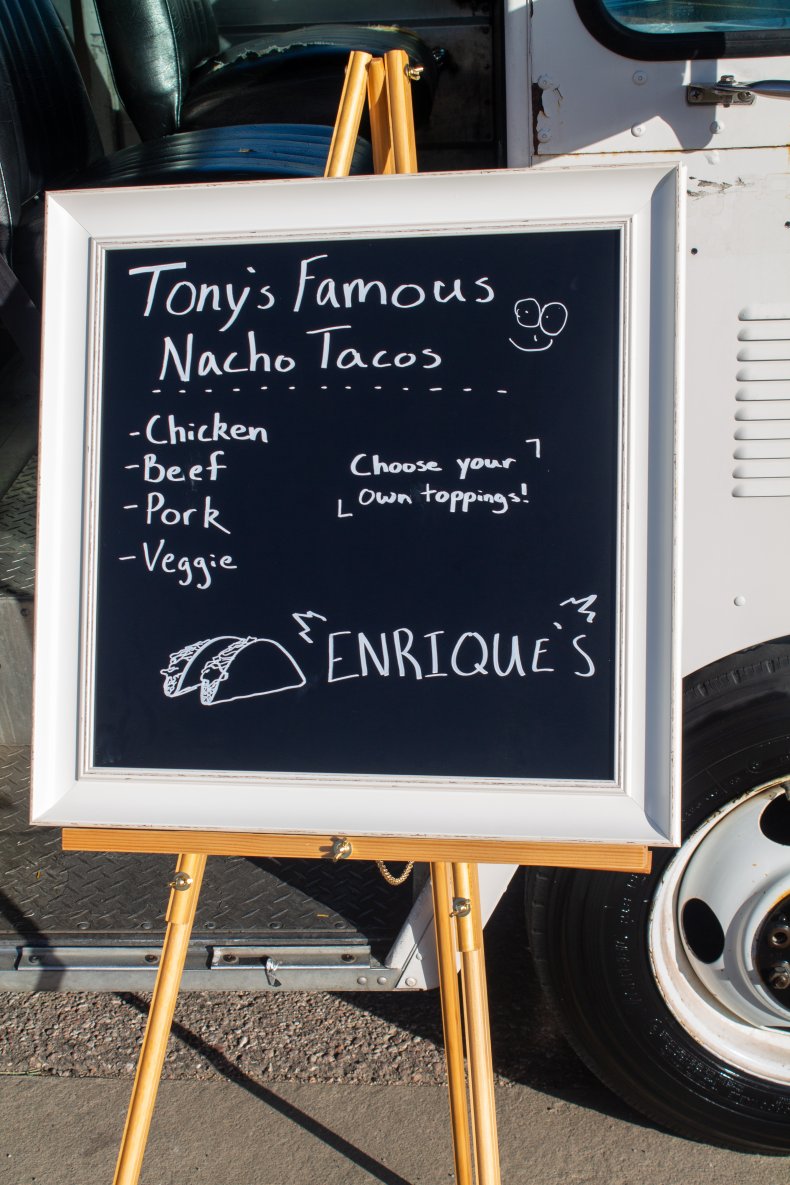 Tony's Famous
Nacho Tacos
- Chicken
- Beef
- Pork
- Veggie
Choose your
own toppings!
ENRIQUE'S